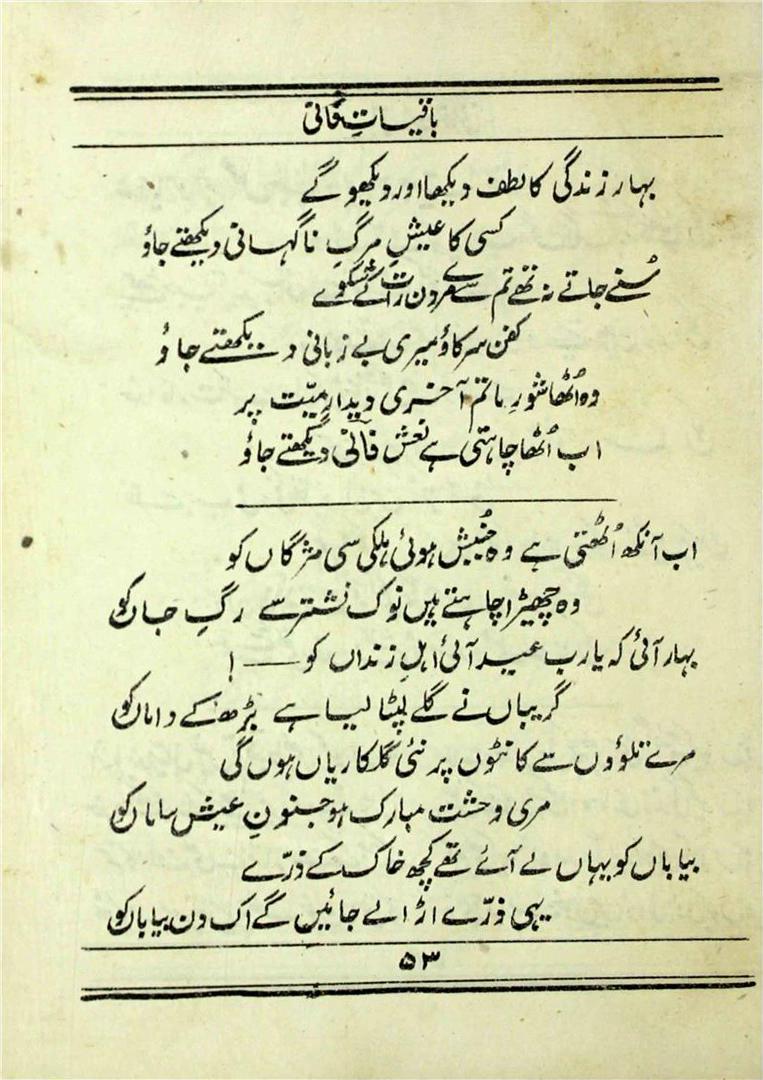 باقیاتِ فانی
بہار زندگی کا لطف دیکھا اور دیکھو گے
کسی کا عیشِ مرگِ ناگہانی دیکھتے جاؤ
سُنے جاتے نہ تھے تم سے مرے دن رات کے شکوے
کفن سرکاؤ میری بے زبانی دیکھتے جاؤ
وہ اُٹھا شورِ ماتم آخری دیدارِ میّت پر
اب اُٹھا چاہتی ہے نعش فانی دیکھتے جاؤ
اب آنکھ اُٹھتی ہے وہ جُنبش ہوئی ہلکی سی مژگاں کو
وہ چھیڑا چاہتے ہیں نوک نشتر سے رگِ جاں کو
بہار آئی کہ یارب عید آئی اہلِ زنداں کو —— !
گریباں نے گلے لپٹا لیا ہے بڑھ کے داماں کو
مرے تلوؤں سے کانٹوں پر نئی گلکاریاں ہوں گی
مری وحشت مبارک ہو جنونِ عیش ساماں کو
بیاباں کو یہاں لے آئے تھے کچھ خاک کے ذرّے
یہی ذرّے اڑا لے جائیں گے اک دن بیاباں کو
۵۳